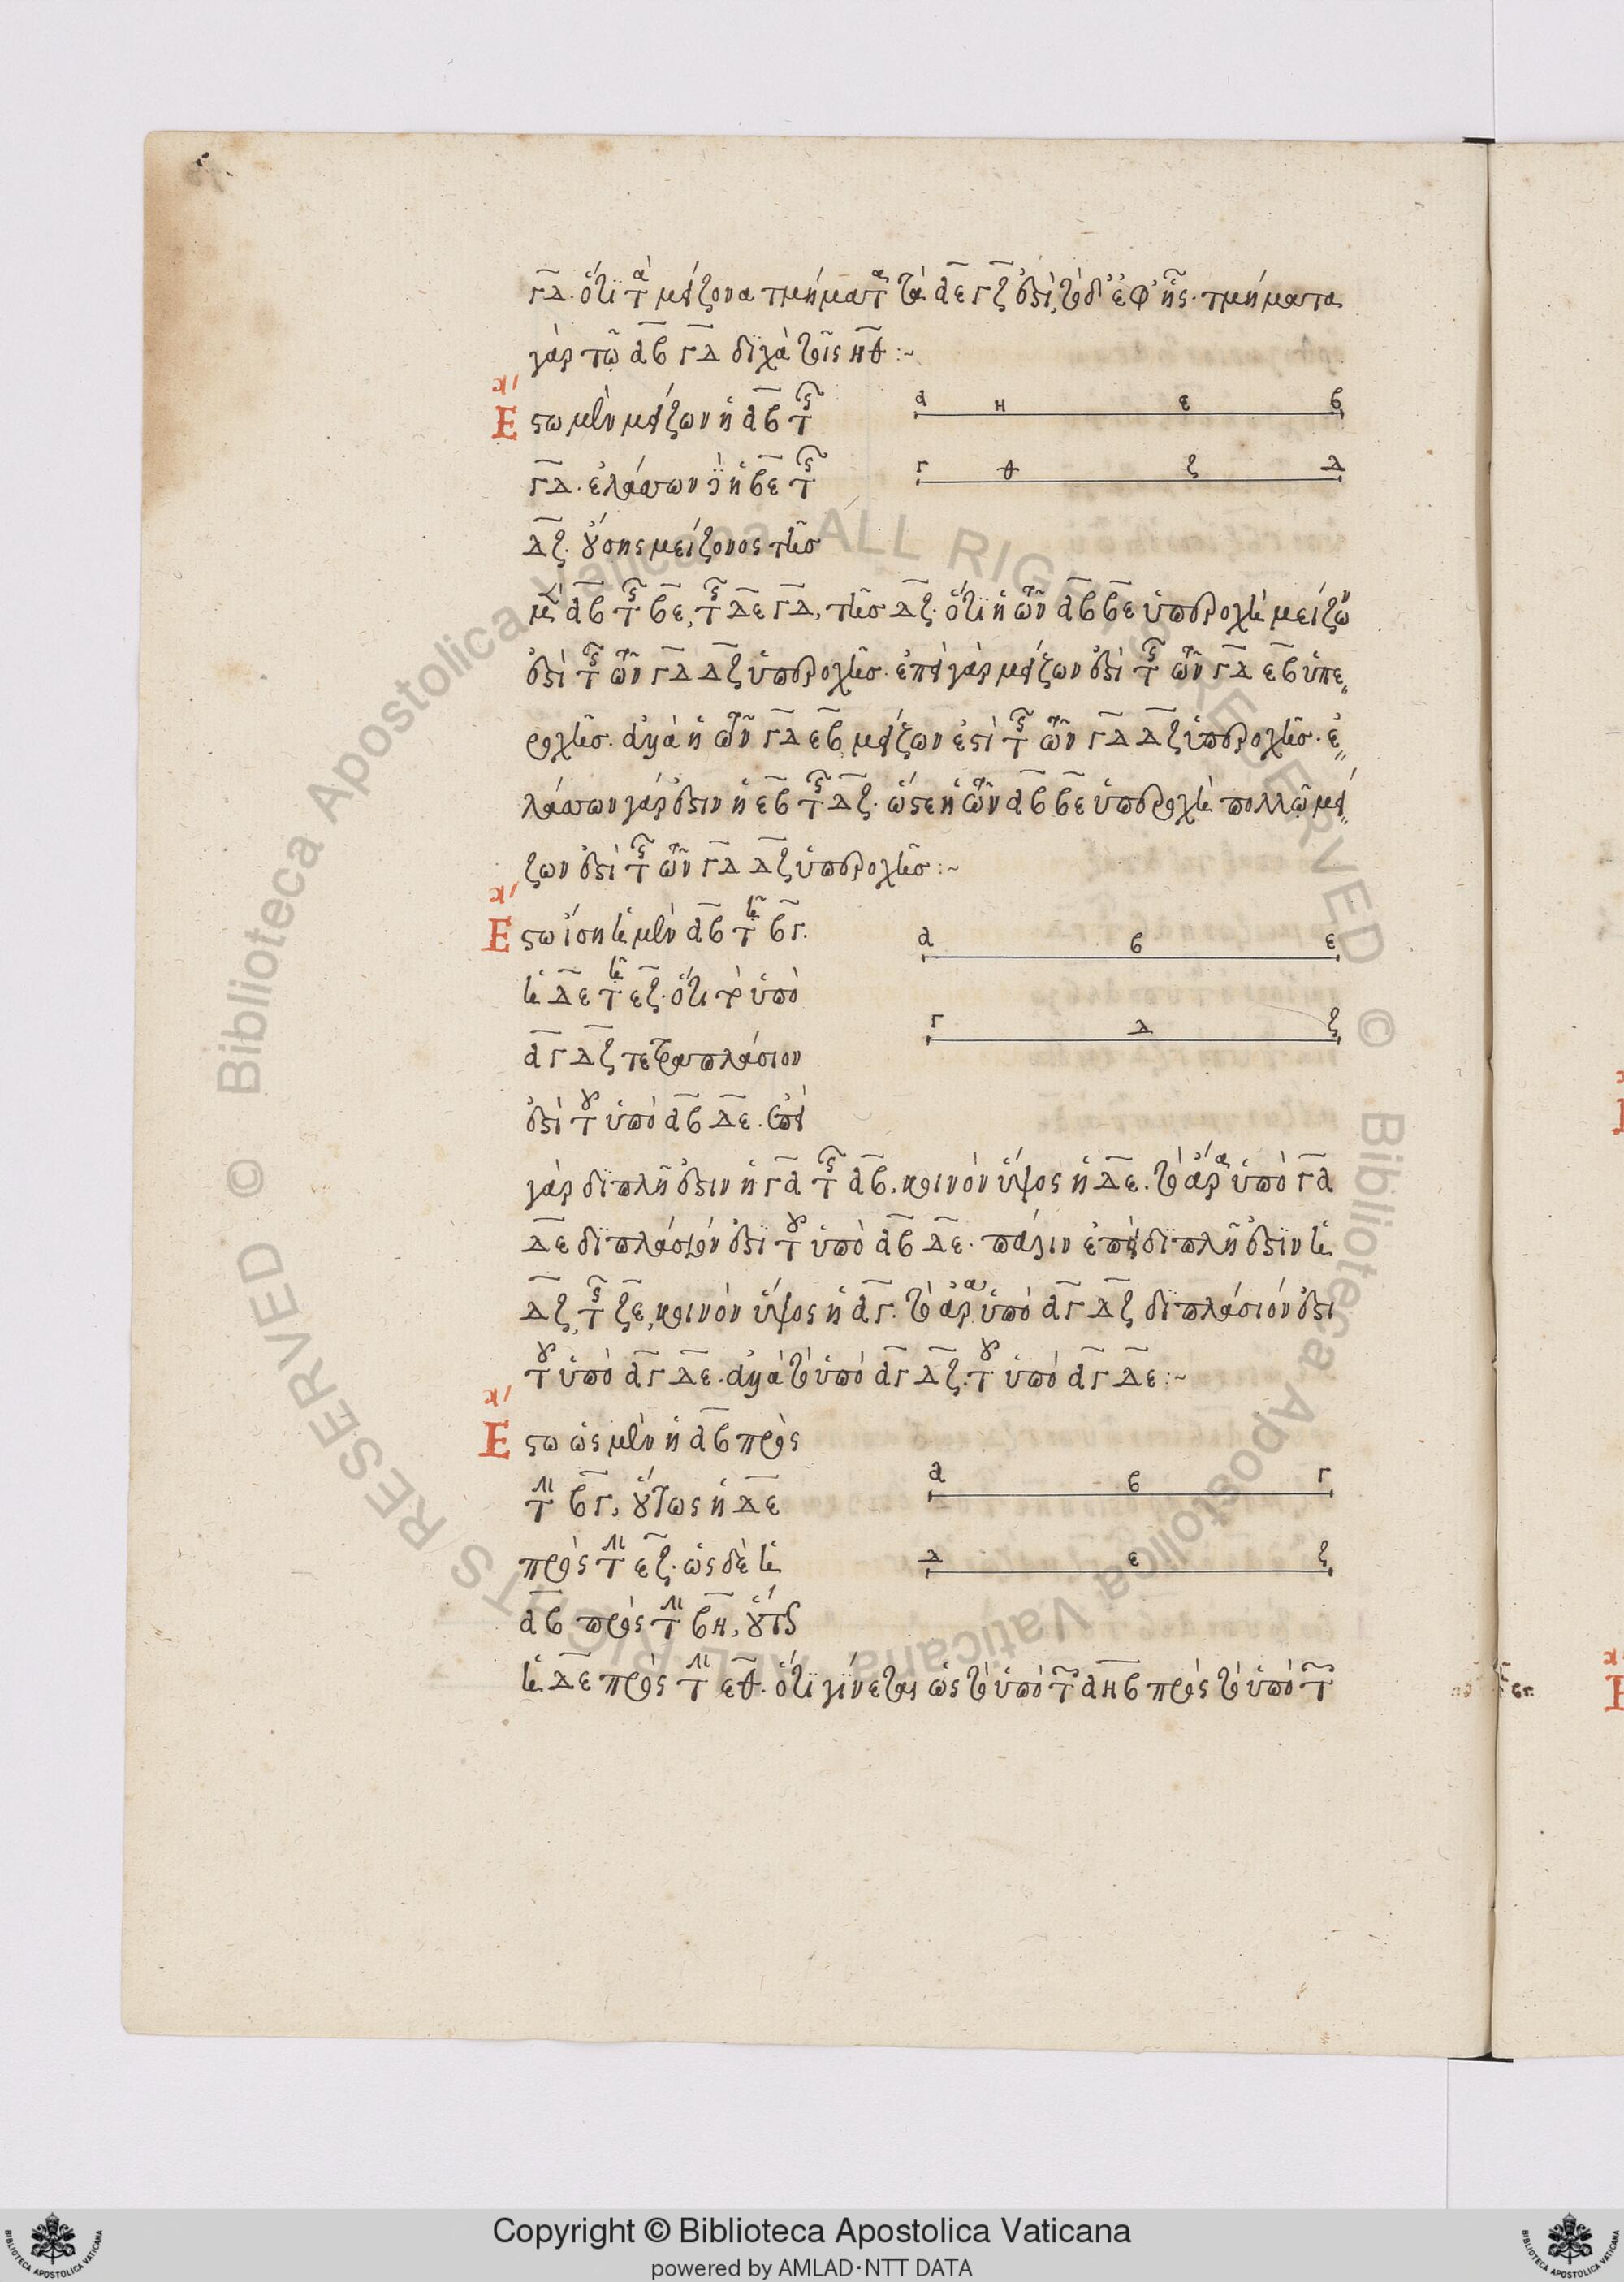 γδ. ὅτι τὰ μείζονα τμήματα τὰ αε γζ ἐστὶ, τὸ δ' ἐφεξῆς. τμήματα
γὰρ τῶ αβ γδ δίχα τοῖς ηθ :~
α'
Εστω μὲν μείζων ἡ αβ τῆς
γδ. ἐλάττων δὲ ἡ βε τῆς
δζ. οὔσης μείζονος τῆς
μὲν αβ τῆς βε, τῆς δὲ γδ, τῆς δζ. ὅτι ἡ τῶν αβ βε ὑπεροχὴ μείζων
ἐστὶ τῆς τῶν γδ δζ ὑπεροχῆς. ἐπεὶ γὰρ μείζων ἐστὶ τῆς τῶν γδ εβ ὑπε
ροχῆς. ἀλλὰ ἡ τῶν γδ εβ μείζων ἐστὶ τῆς τῶν γδ δζ ὑπεροχῆς. ἐ
λάττων γάρ ἐστιν ἡ εβ τῆς δζ. ὥστε ἡ τῶν αβ βε ὑπεροχὴ πολλῶ μεί
ζων ἐστὶ τῆς τῶν γδ δζ ὑπεροχῆς :~
α'
Εστω ἴση ἡ μὲν αβ τῆ βγ.
ἡ δε τῆ εζ. ὅτι τὸ ὑπὸ
αγ δζ τετραπλάσιον
ἐστὶ τοῦ ὑπὸ αβ δε. ἐπεὶ
γὰρ διπλῆ ἐστιν ἡ γα τῆς αβ, κοινὸν ὕψος ἡ δε. τὸ ἄρα ὑπὸ γα
δε διπλάσιόν ἐστι τοῦ ὑπὸ αβ δε. πάλιν ἐπεὶ διπλῆ ἐστιν ἡ
δζ, τῆς ζε, κοινὸν ὕψος ἡ αγ. τὸ ἄρα ὑπὸ αγ δζ διπλάσιόν ἐστι
τοῦ ὑπὸ αγ δε. ἀλλὰ τὸ ὑπὸ αγ δζ. τοῦ ὑπὸ αγ δε :~
α'
Εστω ὡς μὲν ἡ αβ πρὸς
τὴν βγ, οὕτως ἡ δε
πρὸς τὴν εζ. ὡς δὲ ἡ
αβ πρὸς τὴν βη, οὕτως
ἡ δε πρὸς τὴν εθ. ὅτι γίνεται ὡς τὸ ὑπὸ τῶν αηβ πρὸς τὸ ὑπὸ τῶν
α η ε β
γ θ ζ δ
α β ε
γ δ ζ
α β γ
δ ε ζ
© Biblioteca Apostolica Vaticana ALL RIGHTS RESERVED
© Biblioteca Apostolica Vaticana ALL RIGHTS RESERVED
Copyright © Biblioteca Apostolica Vaticana
powered by AMLAD·NTT DATA
BIBLIOTECA APOSTOLICA VATICANA
BIBLIOTECA APOSTOLICA VATICANA